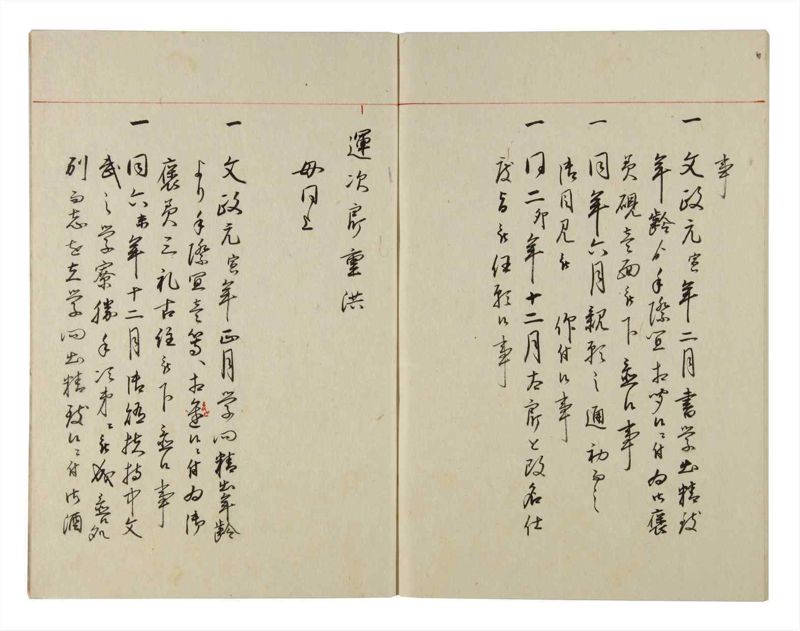 事
一 文政元寅年二月書学出精致
年齢ゟ手際宜相聞候ニ付為御褒
美硯壱面被下置候事
一 同年六月親願之通初而之
御目見被 仰付候事
一 同二卯年十二月右衛と改名仕
度旨被任願候事
運次郎重洪
母同上
一 文政元寅年正月学問精出年齢
より手際宜
褒美三礼古経被下置候事
一 同六未年十二月御扶持中文
武之学寮勝手次第ニ被成置候処
別而志を立学問出精致候ニ付御酒